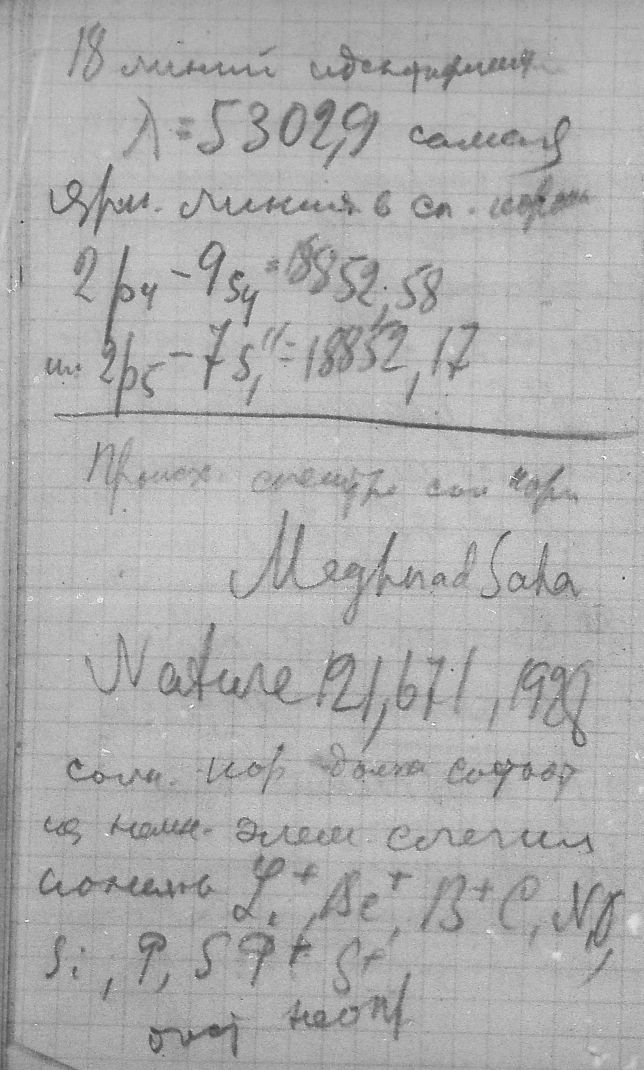 18 линий идентифиц
λ = 5302,9 самая
ярк. линия в сп. корон
2p4 - 9s4 = 18852,58
или 2p5 - 7s1'' = 18852,17
Происх. спектра солн кор
Meghnad Saha
Nature 121, 671, 1928
солн. кор должн состоят
из элем.
Li+, Be+, B+ C, N, O,
Si, P, S P+ S+